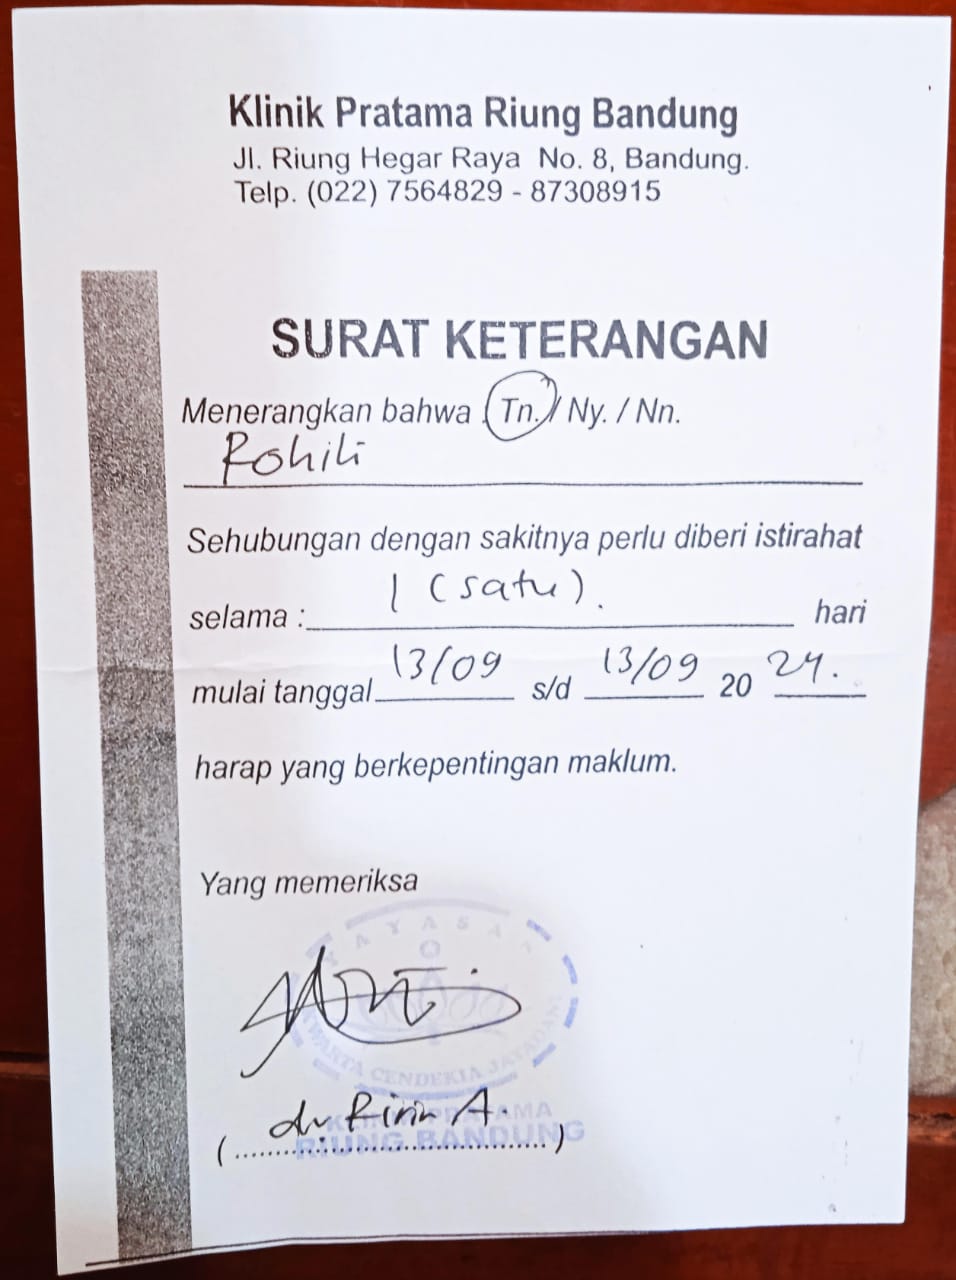 Klinik Pratama Riung Bandung
Jl. Riung Hegar Raya No. 8, Bandung.
Telp. (022) 7564829 - 87308915
SURAT KETERANGAN
Menerangkan bahwa Tn. / Ny. / Nn.
Rohili
Sehubungan dengan sakitnya perlu diberi istirahat
selama : 1 (satu). hari
mulai tanggal 13/09 s/d 13/09 20 24.
harap yang berkepentingan maklum.
Yang memeriksa
YAYASAN
CENDEKIA
dr Ririn A.
KLINIK PRATAMA
RIUNG BANDUNG
(....................................)